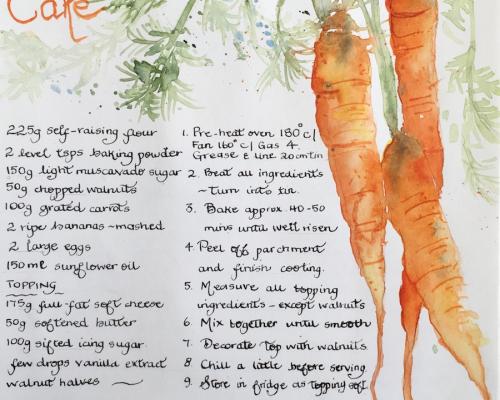 Cake
225g self-raising flour
2 level tsps baking powder
150g light muscavado sugar
50g chopped walnuts
100g grated carrots
2 ripe bananas ~ mashed
2 large eggs
150ml sunflower oil
TOPPING
175g full-fat soft cheese
50g softened butter
100g sifted icing sugar.
few drops vanilla extract
walnut halves ~
1. Pre-heat oven 180°c/
Fan 160°c/ Gas 4.
Grease & line 20cm tin
2. Beat all ingredients
~ Turn into tin.
3. Bake approx 40-50
mins until well risen
4. Peel off parchment
and finish cooling.
5. Measure all topping
ingredients - except walnuts
6. Mix together until smooth
7. Decorate top with walnuts.
8. Chill a little before serving.
9. Store in fridge as topping soft.